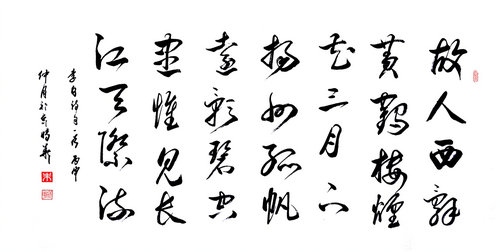 故人西辭
黄鶴樓煙
花三月下
揚州孤帆
遠影碧空
盡惟見長
江天際流
李白詩一首 丙申
仲月於京